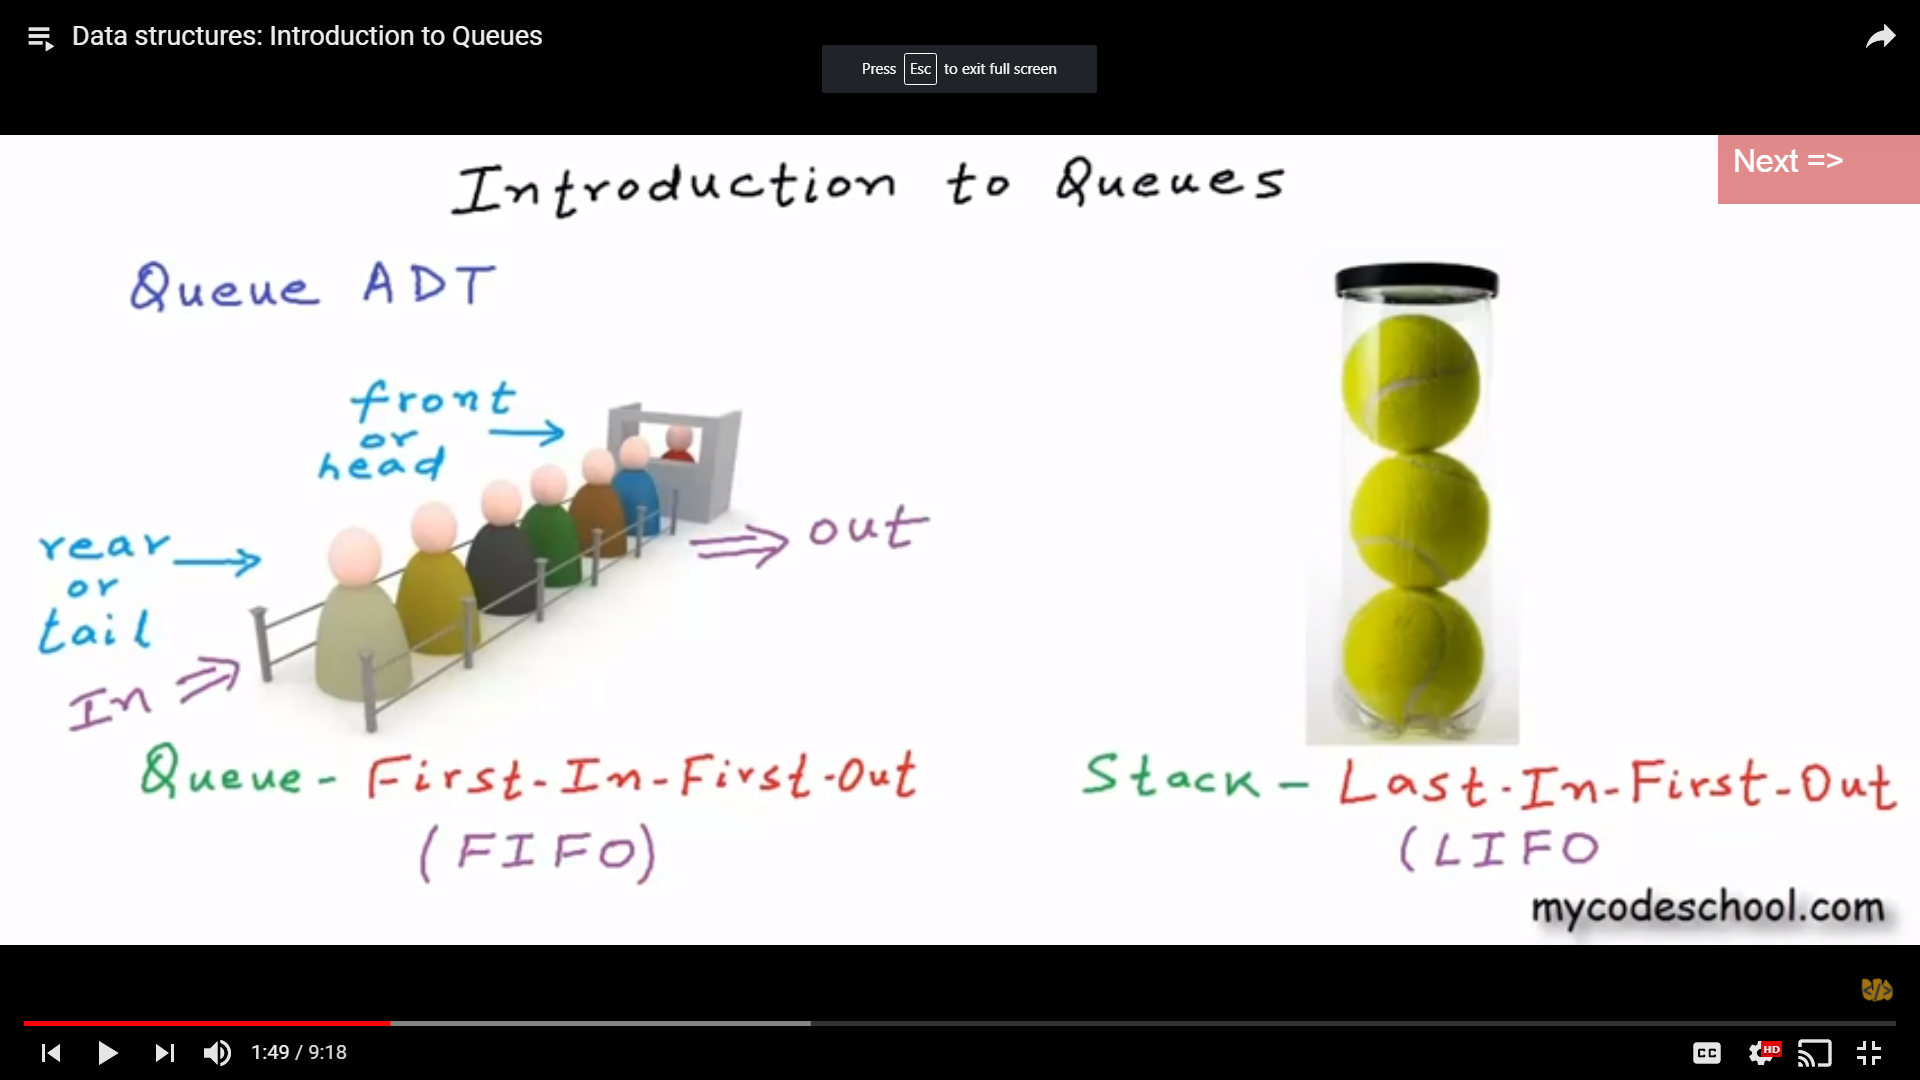 Data structures: Introduction to Queues
Press Esc to exit full screen
Next =>
Introduction to Queues
Queue ADT
front
or
head
rear
or
tail
In
out
Queue - First-In-First-Out
(FIFO)
Stack - Last-In-First-Out
(LIFO
mycodeschool.com
</>
1:49 / 9:18
CC
HD